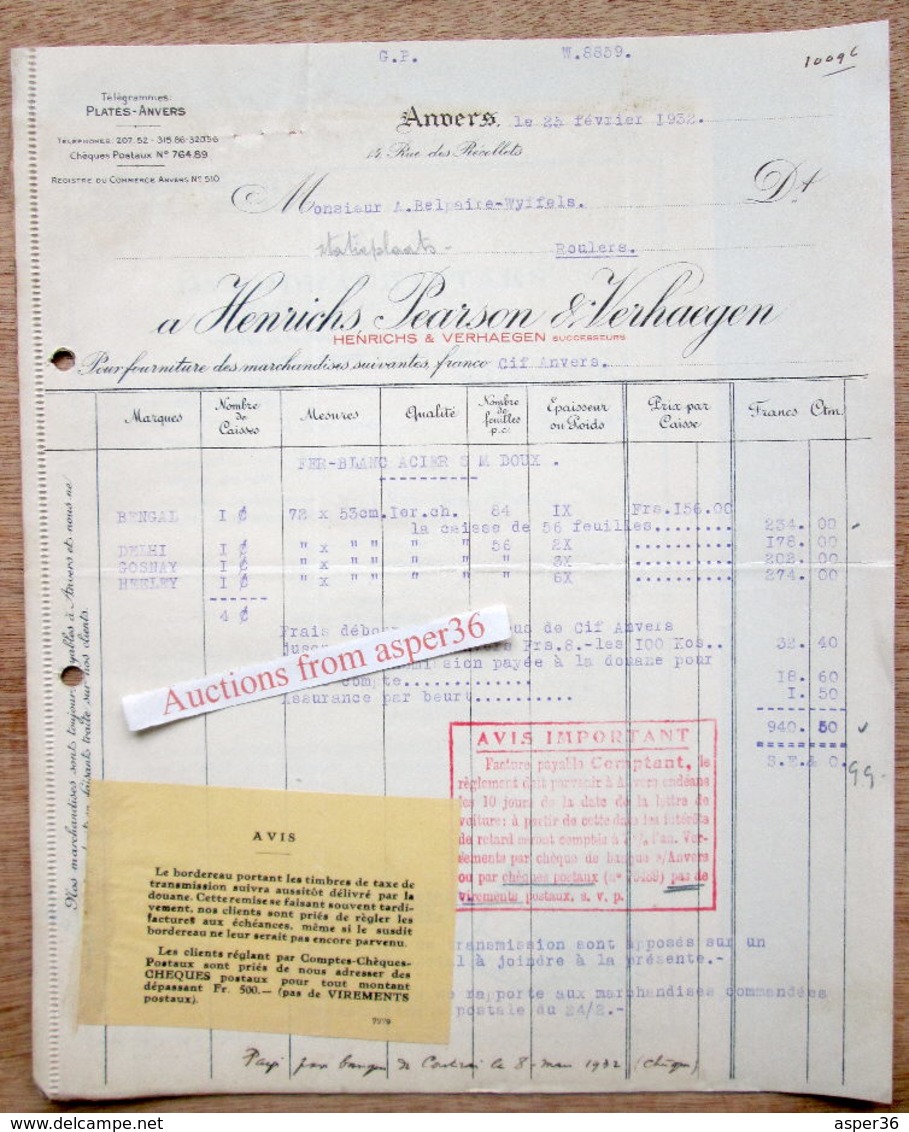 G.P. W.8839.
10096
Télégrammes:
PLATES-ANVERS
TÉLÉPHONES: 207.52 - 315.86-320.36
Chèques Postaux Nº 764.89
REGISTRE DU COMMERCE ANVERS Nº 510
Anvers, le 25 février 1932.
14, Rue des Récollets
Monsieur A.Belpaire-Wyffels. Dt
statieplaats - Roulers.
a Henrichs, Pearson & Verhaegen
HENRICHS & VERHAEGEN SUCCESSEURS
Pour fourniture des marchandises suivantes, franco Cif Anvers.
Marques Nombre de Caisses Mesures Qualité Nombre de feuilles p.c. Epaisseur ou Poids Prix par Caisse Francs Ctm
FER-BLANC ACIER S M DOUX .
BENGAL I ₵ 72 x 53cm. Ier.ch. 84 IX Frs.I56.00
la caisse de 56 feuilles........ 234. 00
DELHI I ₵ " x " " " " 56 2X .......... 178. 00
GOSNAY I ₵ " x " " " " " 3X .......... 202. 00
HEELEY I ₵ " x " " " " " 6X .......... 274. 00
4 ₵
Frais de Cif Anvers
Frs.8.-les I00 Kos.. 32. 40
payée à la douane pour
compte.............. 18. 60
Assurance par beurt.......... I. 50
940. 50
S.E.& O.
99.-
Auctions from asper36
AVIS IMPORTANT
Facture payable Comptant, le
règlement doit parvenir à Anvers endéans
les 10 jours de la date de la lettre de
voiture: à partir de cette date les intérêts
de retard seront comptés à l'an. Ver-
sements par chèque de banque s/Anvers
ou par chèques postaux (nº 76489) pas de
virements postaux, s. v. p.
AVIS
Le bordereau portant les timbres de taxe de
transmission suivra aussitôt délivré par la
douane. Cette remise se faisant souvent tardi-
vement, nos clients sont priés de régler les
factures aux échéances, même si le susdit
bordereau ne leur serait pas encore parvenu.
Les clients réglant par Comptes-Chèques-
Postaux sont priés de nous adresser des
CHEQUES postaux pour tout montant
dépassant Fr. 500.— (pas de VIREMENTS
postaux).
transmission sont apposés sur un
à joindre à la présente.-
rapporte aux marchandises commandées
postale du 24/2.-
Payé par banque de Courtrai le 8 - mars 1932 (chèque)
Nos marchandises sont toujours payables à Anvers et nous ne
faisants traite sur nos clients.
delcampe.net
asper36